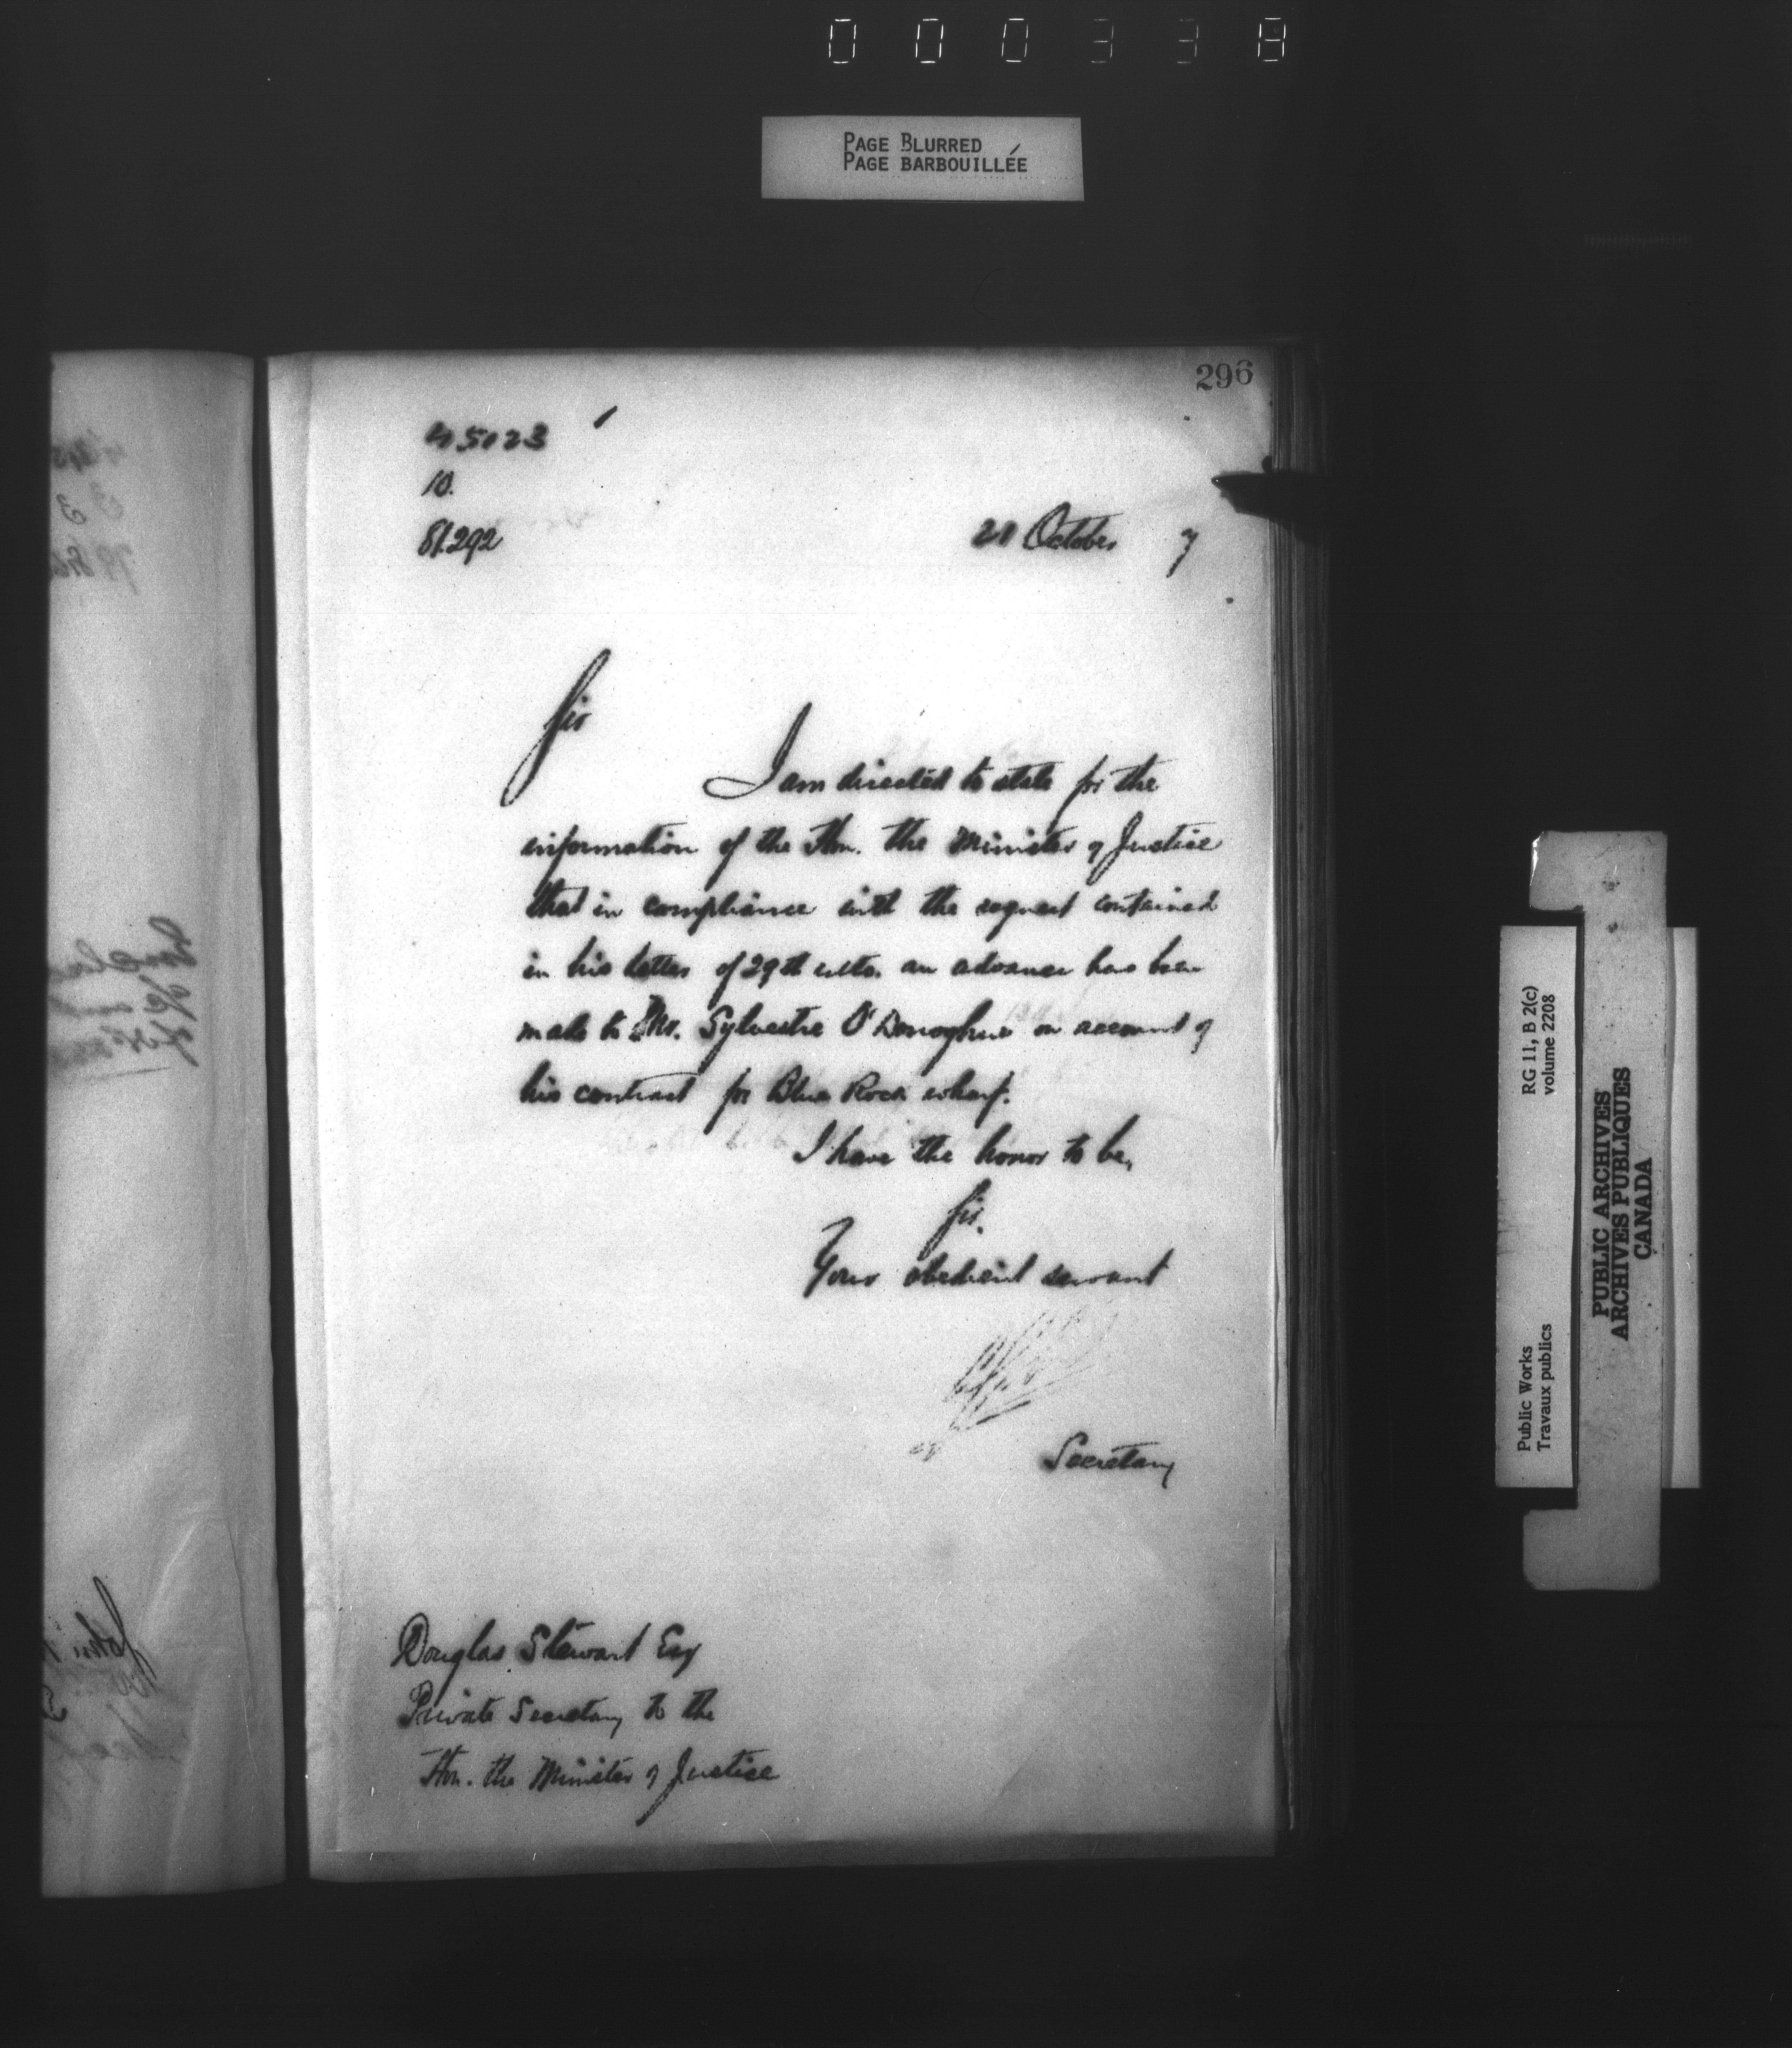 000338
PAGE BLURRED
PAGE BARBOUILLÉE
296
45023
10.
81292
October 7
Sir
I am directed to state for the
information of the Hon. the Minister of Justice
that in compliance with the request contained
in his letter of 29th ulto. an advance has been
made to Mr. Sylvestre O'Donoghue on account of
his contract for Blue Rock wharf.
I have the honor to be,
Sir.
Your obedient servant
Secretary
Douglas Stewart Esq
Private Secretary to the
Hon. the Minister of Justice
RG 11, B 2(c)
volume 2208
Public Works
Travaux publics
PUBLIC ARCHIVES
ARCHIVES PUBLIQUES
CANADA